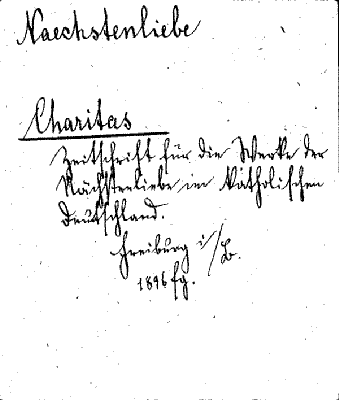 Naechstenliebe
Charitas
Zeitschrift für die Werke der
Nächstenliebe im katholischen
Deutschland.
Freiburg i/B.
1896 fg.